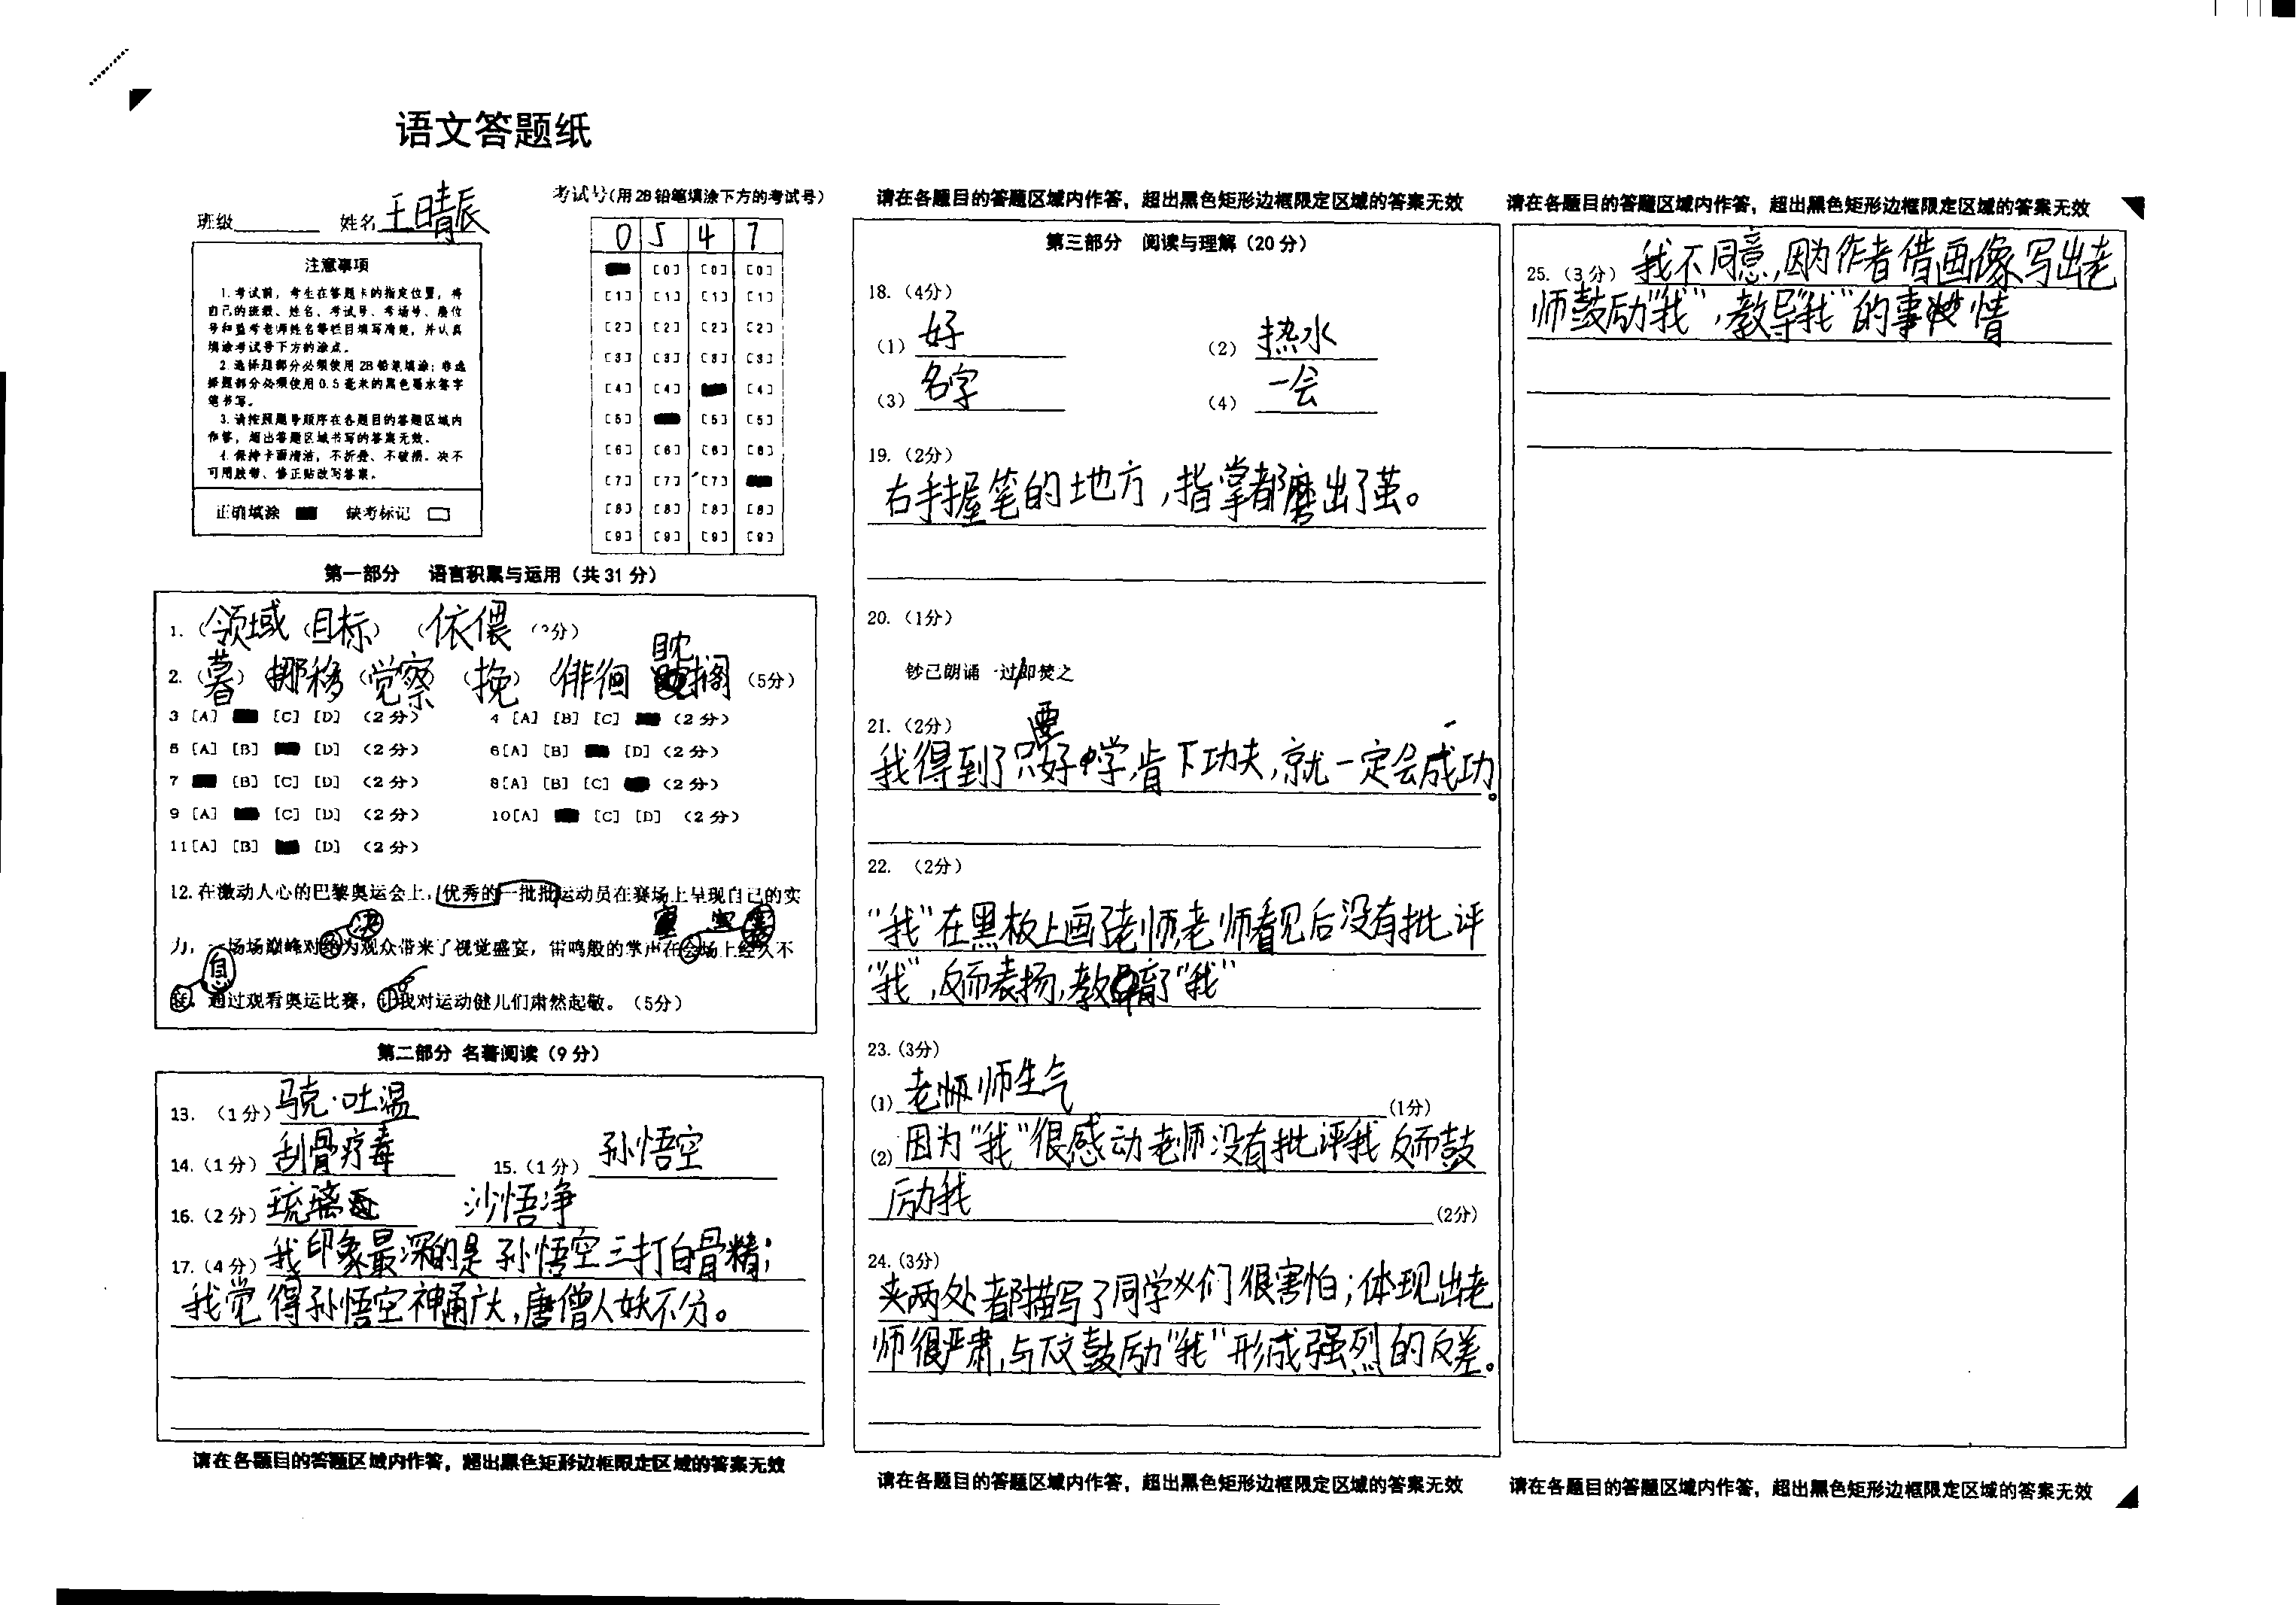 语文答题纸
班级 姓名 王晴辰
考试号(用2B铅笔填涂下方的考试号)
0 5 4 7
[0] [0] [0]
[1] [1] [1] [1]
[2] [2] [2] [2]
[3] [3] [3] [3]
[4] [4] [4]
[5] [5] [5]
[6] [6] [6] [6]
[7] [7] [7]
[8] [8] [8] [8]
[9] [9] [9] [9]
注意事项
1.考试前，考生在答题卡的指定位置，将
自己的班级、姓名、考试号、考场号、座位
号和监考老师姓名等栏目填写清楚，并认真
填涂考试号下方的涂点。
2.选择题部分必须使用2B铅笔填涂；非选
择题部分必须使用0.5毫米的黑色墨水签字
笔书写。
3.请按照题号顺序在各题目的答题区域内
作答，超出答题区域书写的答案无效。
4.保持卡面清洁，不折叠、不破损。决不
可用胶带、修正贴改写答案。
正确填涂 缺考标记
第一部分 语言积累与运用（共31分）
1.（领域（目标）（依偎（3分）
2.（暮）挪移（觉察（挽）（徘徊 耽搁（5分）
3 [A] [C] [D] （2分） 4 [A] [B] [C] （2分）
5 [A] [B] [D] （2分） 6[A] [B] [D]（2分）
7 [B] [C] [D] （2分） 8[A] [B] [C] （2分）
9 [A] [C] [D] （2分） 10[A] [C] [D] （2分）
11[A] [B] [D] （2分）
12.在激动人心的巴黎奥运会上，优秀的一批批运动员在赛场上呈现自己的实
决
力，一场场巅峰对绝为观众带来了视觉盛宴，雷鸣般的掌声在会场上经久不
息
通过观看奥运比赛，让我对运动健儿们肃然起敬。（5分）
第二部分 名著阅读（9分）
13.（1分）马克·吐温
14.（1分）刮骨疗毒 15.（1分）孙悟空
16.（2分）琉璃 沙悟净
17.（4分）我印象最深的是孙悟空三打白骨精；
我觉得孙悟空神通广大，唐僧人妖不分。
请在各题目的答题区域内作答，超出黑色矩形边框限定区域的答案无效
请在各题目的答题区域内作答，超出黑色矩形边框限定区域的答案无效
第三部分 阅读与理解（20分）
18.（4分）
（1）好 （2）热水
（3）名字 （4）一会
19.（2分）
右手握笔的地方，指掌都磨出了茧。
20.（1分）
钞已朗诵 一过/即焚之
21.（2分）
要
我得到了只好学，肯下功夫，就一定会成功。
22.（2分）
“我”在黑板上画了老师，老师看见后没有批评
“我”，反而表扬，教育了“我”
23.(3分)
(1) 老师生气 (1分)
(2) 因为“我”很感动老师没有批评我 反而鼓
励我 (2分)
24.(3分)
夹两处都描写了同学们很害怕；体现出老
师很严肃，与下文鼓励“我”形成强烈的反差。
请在各题目的答题区域内作答，超出黑色矩形边框限定区域的答案无效
请在各题目的答题区域内作答，超出黑色矩形边框限定区域的答案无效
25.（3分）我不同意，因为作者借画像写出老
师鼓励“我”，教导“我”的事情
请在各题目的答题区域内作答，超出黑色矩形边框限定区域的答案无效